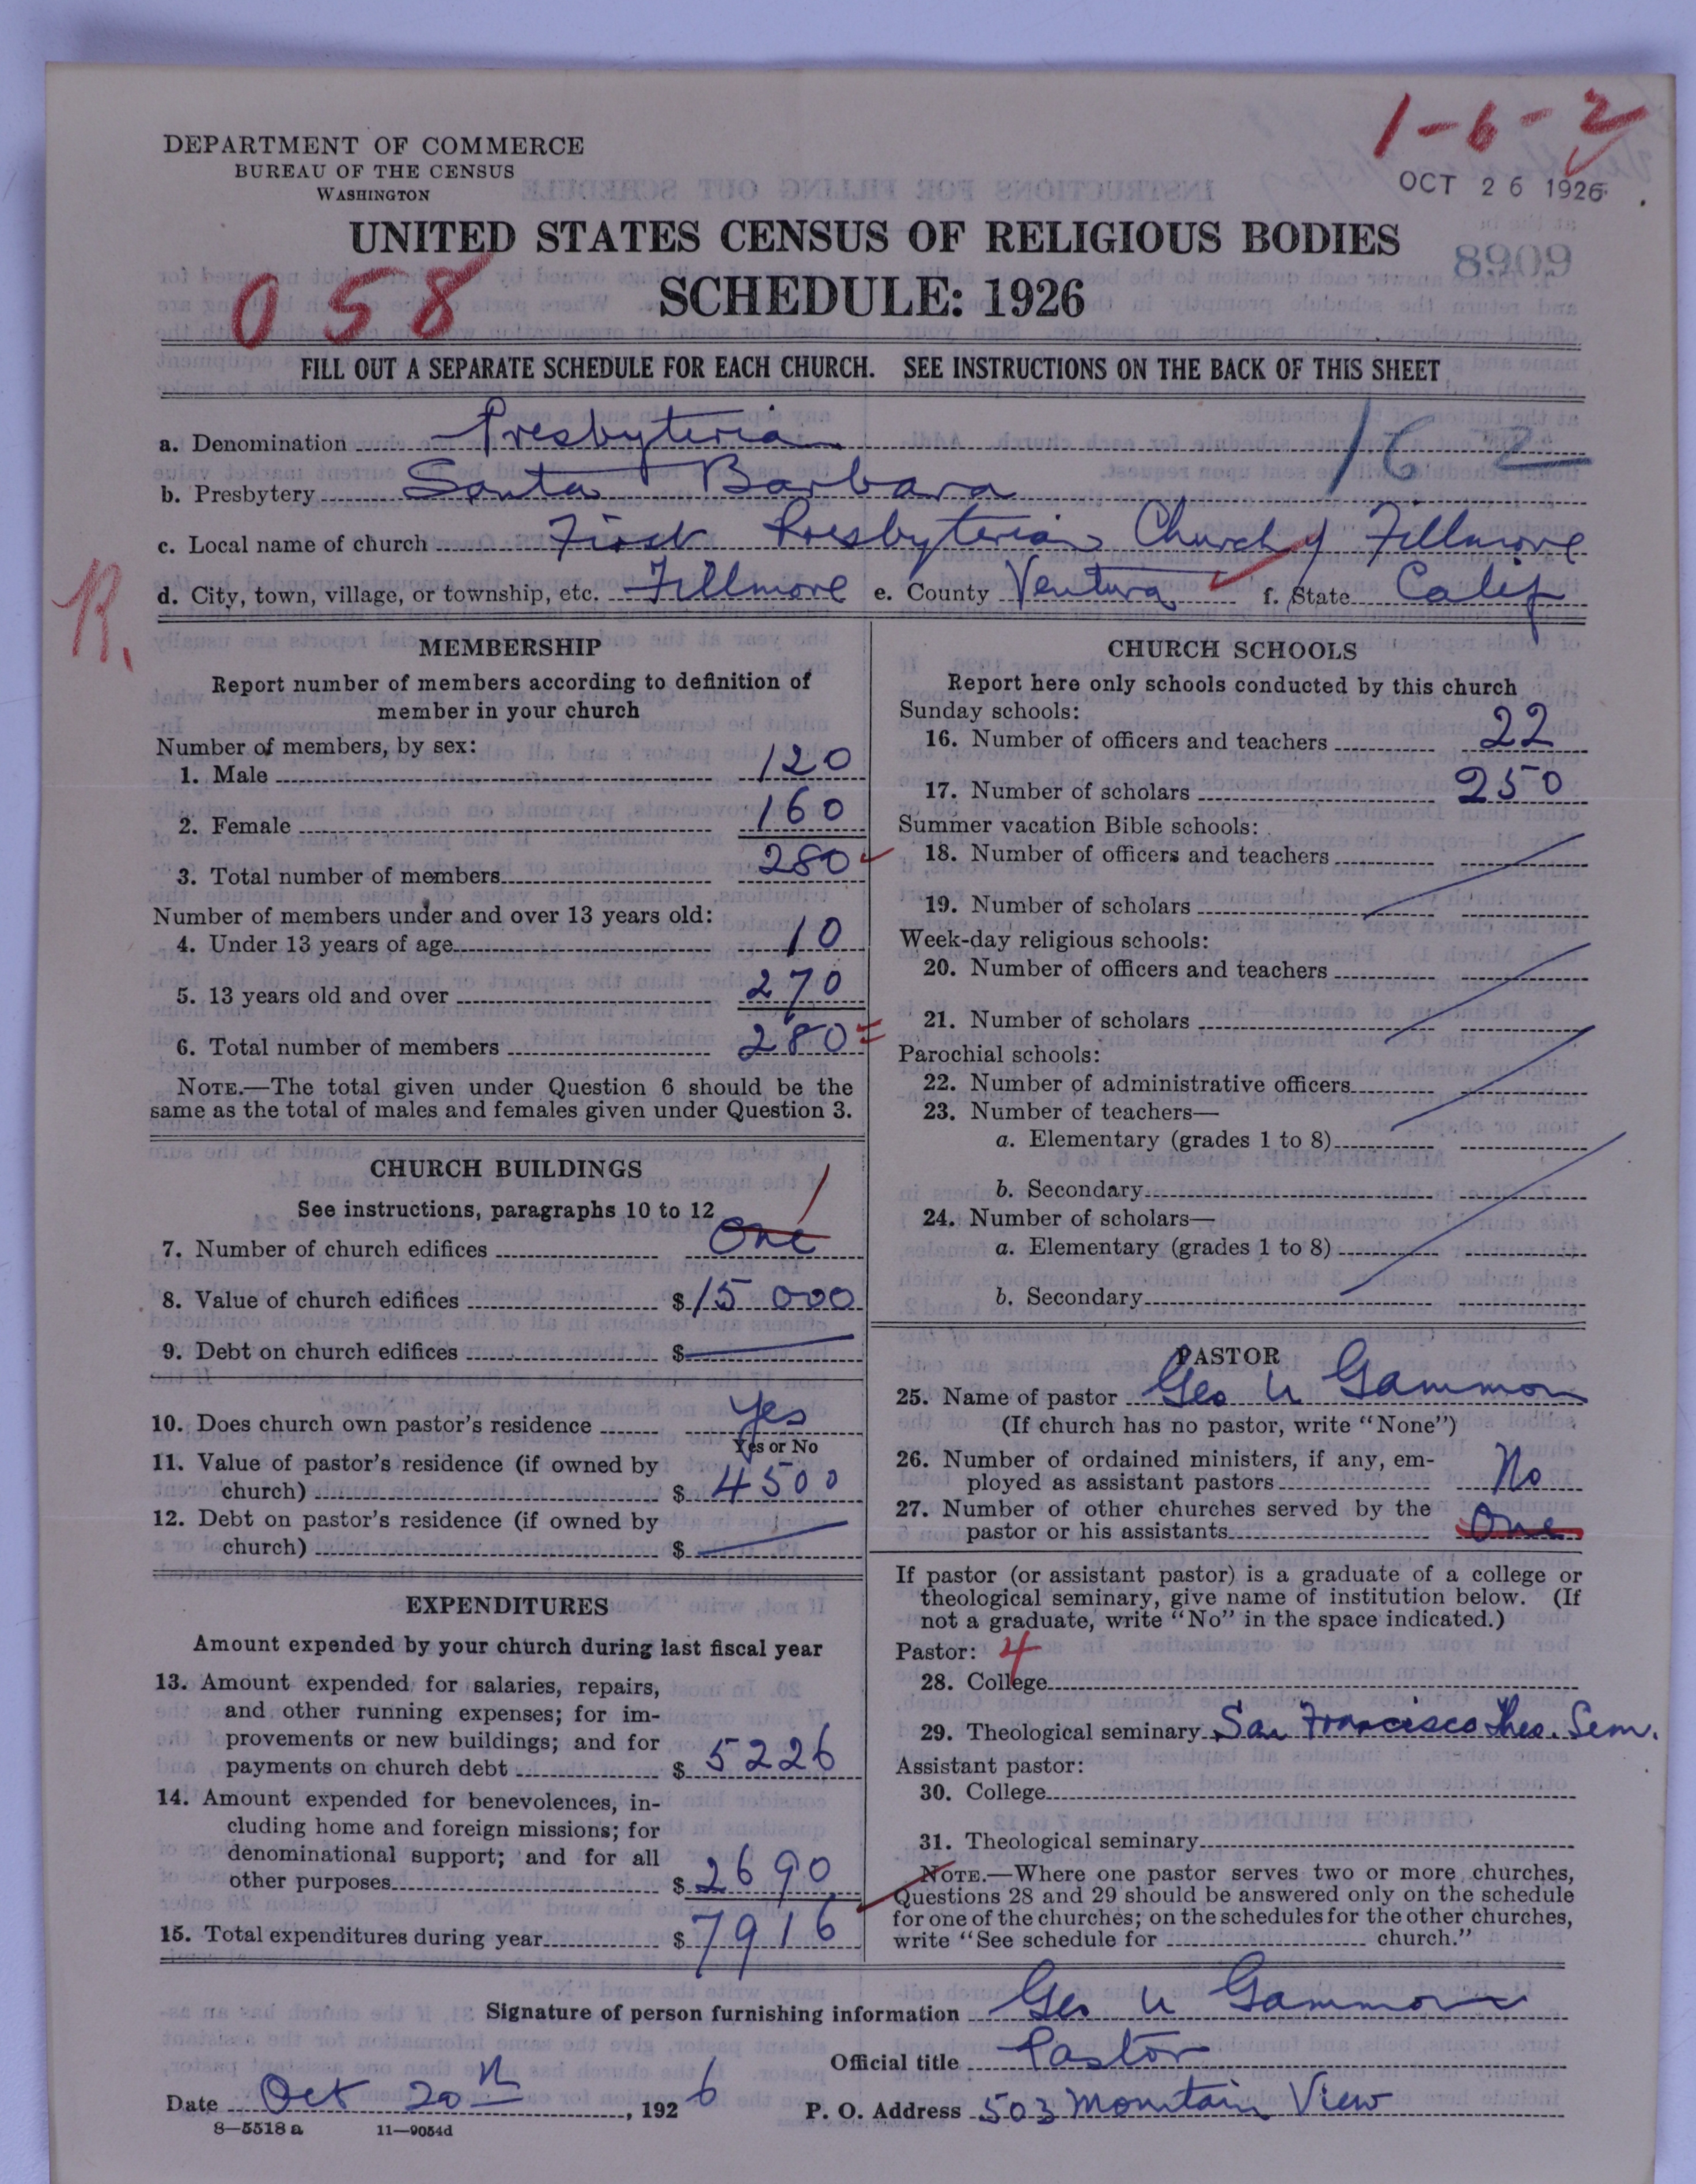 1-6-2
DEPARTMENT OF COMMERCE
BUREAU OF THE CENSUS
WASHINGTON
OCT 26 1926
UNITED STATES CENSUS OF RELIGIOUS BODIES
8909
058
SCHEDULE: 1926
FILL OUT A SEPARATE SCHEDULE FOR EACH CHURCH. SEE INSTRUCTIONS ON THE BACK OF THIS SHEET
a. Denomination Presbyterian
16 2
b. Presbytery Santa Barbara
c. Local name of church First Presbyterian Church of Fillmore
d. City, town, village, or township, etc. Fillmore e. County Ventura f. State Calif
R.
MEMBERSHIP
Report number of members according to definition of
member in your church
Number of members, by sex:
1. Male 120
2. Female 160
3. Total number of members 280
Number of members under and over 13 years old:
4. Under 13 years of age 10
5. 13 years old and over 270
6. Total number of members 280
NOTE.—The total given under Question 6 should be the
same as the total of males and females given under Question 3.
CHURCH BUILDINGS
See instructions, paragraphs 10 to 12
7. Number of church edifices One 1
8. Value of church edifices $15000
9. Debt on church edifices $
10. Does church own pastor's residence Yes
Yes or No
11. Value of pastor's residence (if owned by
church) $4500
12. Debt on pastor's residence (if owned by
church) $
EXPENDITURES
Amount expended by your church during last fiscal year
13. Amount expended for salaries, repairs,
and other running expenses; for im-
provements or new buildings; and for
payments on church debt $5226
14. Amount expended for benevolences, in-
cluding home and foreign missions; for
denominational support; and for all
other purposes $2690
15. Total expenditures during year $7916
CHURCH SCHOOLS
Report here only schools conducted by this church
Sunday schools:
16. Number of officers and teachers 22
17. Number of scholars 250
Summer vacation Bible schools:
18. Number of officers and teachers
19. Number of scholars
Week-day religious schools:
20. Number of officers and teachers
21. Number of scholars
Parochial schools:
22. Number of administrative officers
23. Number of teachers—
a. Elementary (grades 1 to 8)
b. Secondary
24. Number of scholars—
a. Elementary (grades 1 to 8)
b. Secondary
PASTOR
25. Name of pastor Geo U Gammon
(If church has no pastor, write "None")
26. Number of ordained ministers, if any, em-
ployed as assistant pastors No
27. Number of other churches served by the
pastor or his assistants One
If pastor (or assistant pastor) is a graduate of a college or
theological seminary, give name of institution below. (If
not a graduate, write "No" in the space indicated.)
Pastor: 4
28. College
29. Theological seminary San Francisco Theo. Sem.
Assistant pastor:
30. College
31. Theological seminary
NOTE.—Where one pastor serves two or more churches,
Questions 28 and 29 should be answered only on the schedule
for one of the churches; on the schedules for the other churches,
write "See schedule for church."
Signature of person furnishing information Geo U Gammon
Official title Pastor
Date Oct 20th, 1926 P. O. Address 503 Mountain View
8—5518a 11—9054d